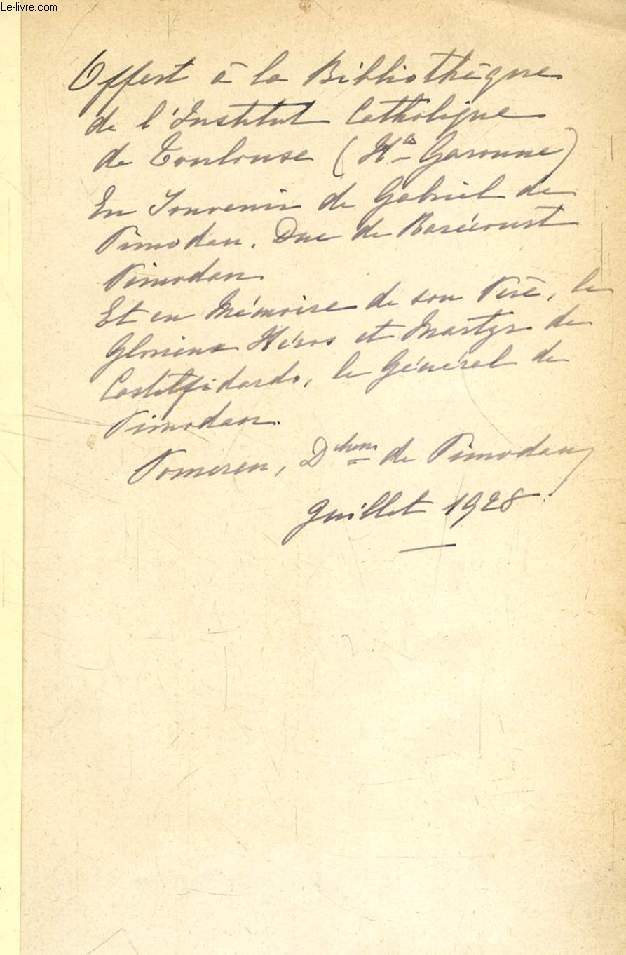 Le-livre.com
Offert à la Bibliothèque
de l'Institut Catholique
de Toulouse (Hte Garonne)
En Souvenir de Gabriel de
Pimodan. Duc de Rarécourt
Pimodan
Et en Mémoire de son Père, le
Glorieux Héros et Martyr de
Castelfidardo, le Général de
Pimodan.
de Pimodan
Juillet 1928.